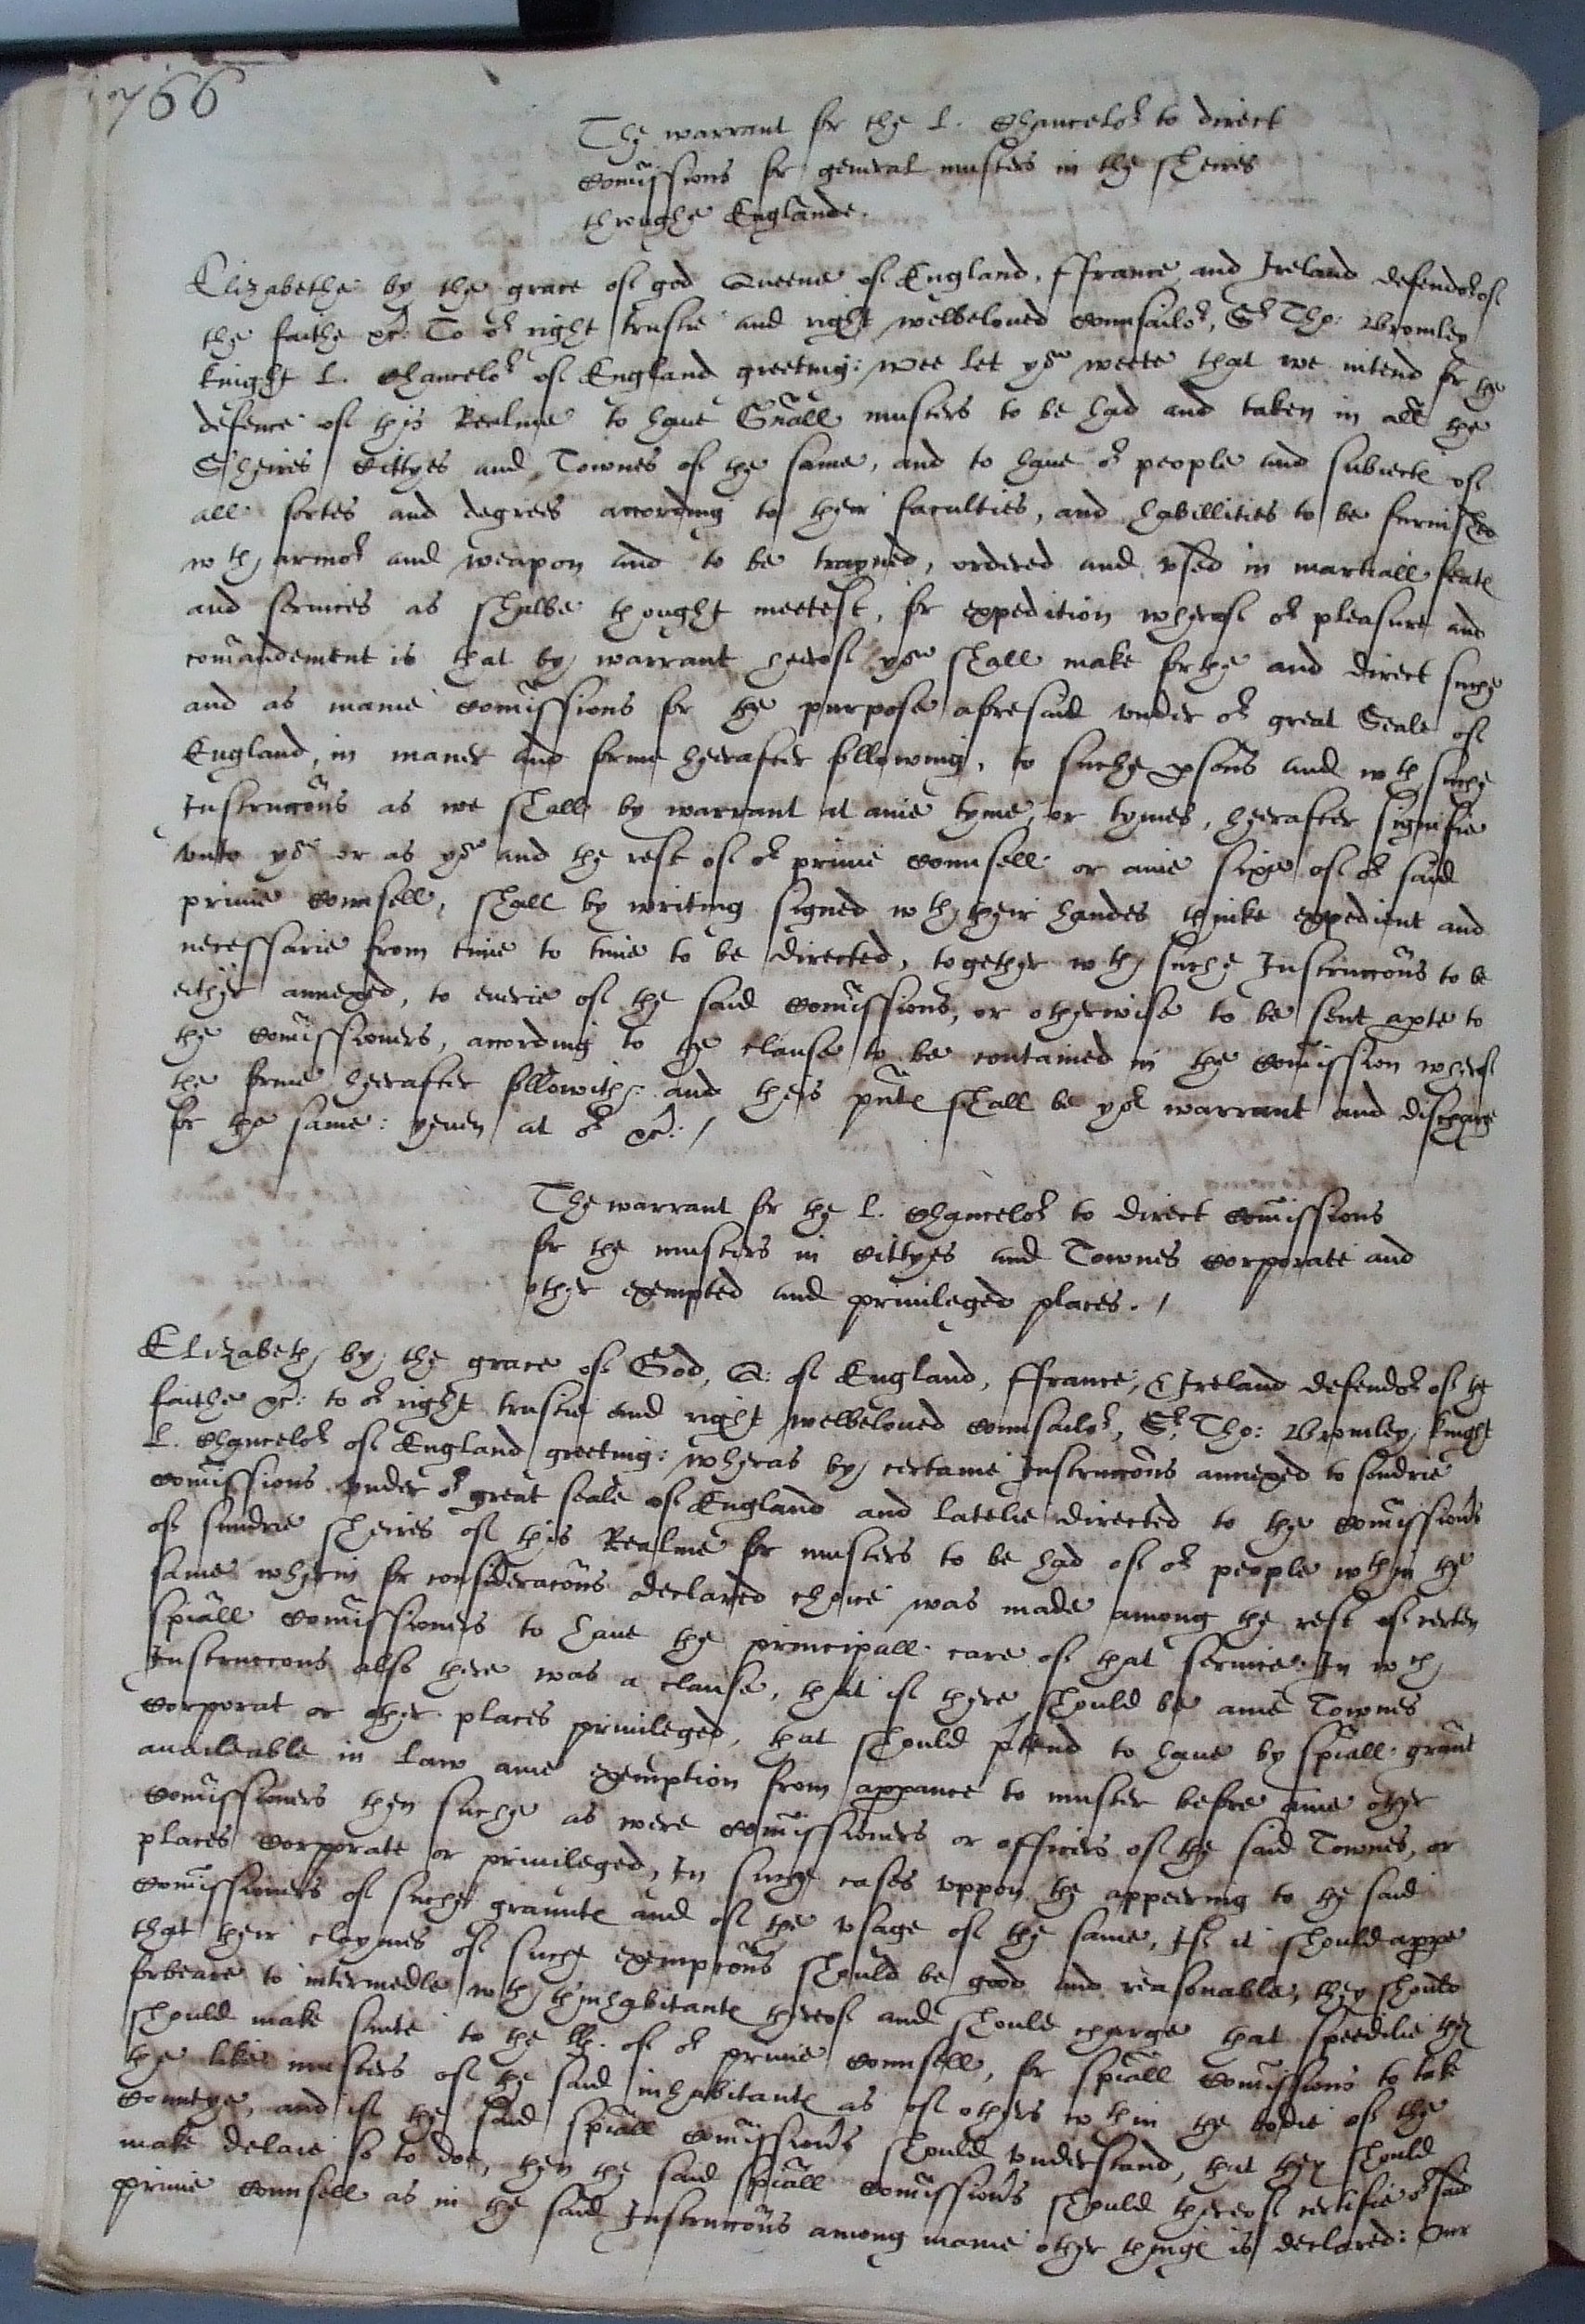 766
The warrant for the L. Chancelor to direct
Comissions for general musters in the sheires
throughe Englande.
Elizabethe by the grace of god Queene of England, ffrance and Ireland defendor of
the faithe &c: To or right trustie and right welbeloued Counsailor, Sr Tho: Bromley
knight L. Chancelor of England greeting: wee let you weete that we intend for the
defence of this Realme to haue Gnall musters to be had and taken in all the
Sheires Cittyes and Townes of the same, and to haue or people and subiectes of
all sortes and degrees according to their faculties, and habillities to be furnished
wth armor and weapon and to be trayned, ordered and vsed in martiall feates
and seruices as shalbe thought meetest, for expedition wherof or pleasure and
comandement is that by warrant heerof you shall make forthe and direct suche
and as manie Comissions for the purpose aforesaid vnder or great Seale of
England, in maner and forme heerafter following, to suche psons and wth suche
Instruccons as we shall by warrant at anie tyme, or tymes, heerafter signifie
vnto you or as you and the rest of or priuie Counsell or anie sixe of or said
priuie Counsell, shall by writing signed wth their handes thinke expedient and
necessarie from time to time to be directed, together wth suche Instruccons to be
either annexed, to euerie of the said Comissions, or otherwise to be sent apte to
the Comissioners, according to the clause to be contained in the Comission wherof
the forme heerafter followith: and theis pntes shall be yor warrant and discharge
for the same: yeuen at or &c: /
The warrant for the L. Chancelor to direct Comissions
for the musters in Cittyes and Townes Corporate and
other exempted and priuileged places. /
Elizabeth by the grace of God, Q: of England, ffrance, & Ireland defendor of the
faithe &c: to or right trustie and right welbeloued Counsailor, Sr Tho: Bromley knight
L. Chancelor of England greeting: wheras by certaine Instruccons annexed to sondrie
Comissions vnder or great seale of England and latelie directed to the Comissions
of sundrie sheires of this Realme for musters to be had of or people wthin the
same wherin for consideracons declared choice was made among the rest of certen
spiall Comissioners to haue the principall care of that seruice. In wch
Instruccons also there was a clause, that if there should be anie Townes
Corporat or other places priuileged, that should ptend to haue by spiall graunt
auaileable in Law anie exemption from appance to muster before anie other
Comissioners then suche as were Comissioners or officers of the said Townes, or
places Corporate or priuileged, In suche cases vppon the appeering to the said
Comissioners of suche grauntes and of the vsage of the same, If it should appe
that their claymes of suche exempcons should be good and reasonable, they should
forbeare to intermedle wth thinhabitantes thereof and should charge that speedelie they
should make suite to the ll. of or priuie Counsell, for spiall Comissions to take
the like musters of the said inhabitantes as of others wthin the bodie of the
Countye, and if the said spiall Comissions should vnderstand, that they should
make delaie so to doe, then the said spiall Comissions should thereof certifie or said
priuie Counsell as in the said Instruccons among manie other thinges is declared: Our